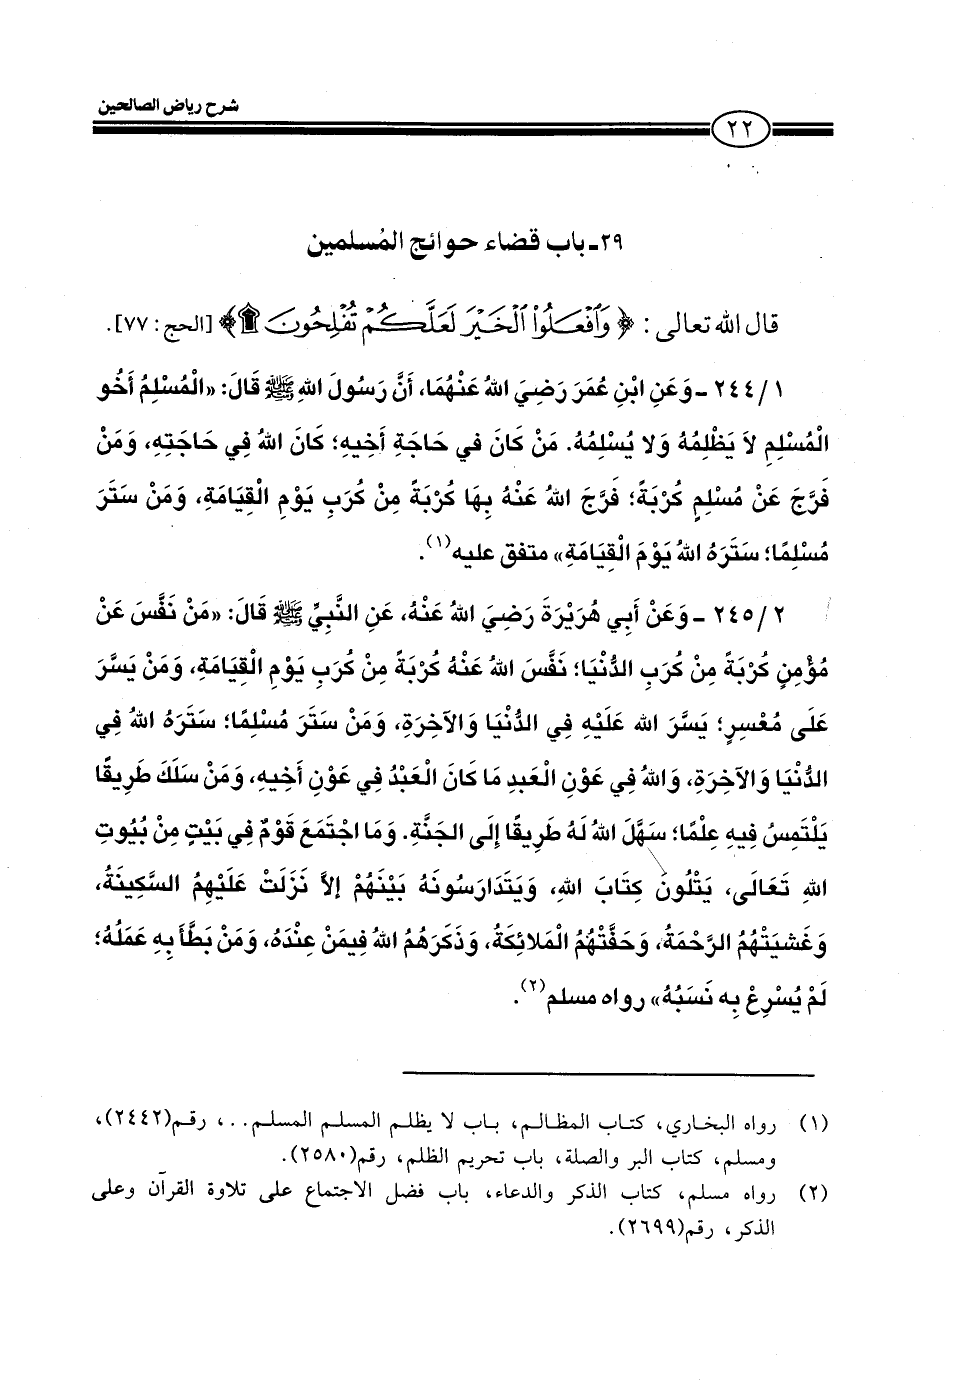 شرح رياض الصالحين
٢٢
٢٩ـ باب قضاء حوائج المُسلمين
قال الله تعالى: ﴿ وَٱفۡعَلُواْ ٱلۡخَيۡرَ لَعَلَّكُمۡ تُفۡلِحُونَ ۩﴾ [الحج: ٧٧].
١/ ٢٤٤ ـ وَعَنِ ابْنِ عُمَرَ رَضِيَ اللهُ عَنْهُمَا، أَنَّ رَسُولَ اللهِ ﷺ قَالَ: «الْمُسْلِمُ أَخُو
الْمُسْلِمِ لاَ يَظْلِمُهُ وَلا يُسْلِمُهُ. مَنْ كَانَ في حَاجَةِ أَخِيهِ؛ كَانَ اللهُ فِي حَاجَتِهِ، وَمَنْ
فَرَّجَ عَنْ مُسْلِمٍ كُرْبَةً؛ فَرَّجَ اللهُ عَنْهُ بِهَا كُرْبَةً مِنْ كُرَبِ يَوْمِ الْقِيَامَةِ، وَمَنْ سَتَرَ
مُسْلِمًا؛ سَتَرَهُ اللهُ يَوْمَ الْقِيَامَةِ» متفق عليه(١).
٢/ ٢٤٥ ـ وَعَنْ أَبِي هُرَيْرَةَ رَضِيَ اللهُ عَنْهُ، عَنِ النَّبِيِّ ﷺ قَالَ: «مَنْ نَفَّسَ عَنْ
مُؤْمِنٍ كُرْبَةً مِنْ كُرَبِ الدُّنْيَا؛ نَفَّسَ اللهُ عَنْهُ كُرْبَةً مِنْ كُرَبِ يَوْمِ الْقِيَامَةِ، وَمَنْ يَسَّرَ
عَلَى مُعْسِرٍ؛ يَسَّرَ الله عَلَيْهِ فِي الدُّنْيَا وَالآخِرَةِ، وَمَنْ سَتَرَ مُسْلِمًا؛ سَتَرَهُ اللهُ فِي
الدُّنْيَا وَالآخِرَةِ، وَاللهُ فِي عَوْنِ الْعَبدِ مَا كَانَ الْعَبْدُ فِي عَوْنِ أَخِيهِ، وَمَنْ سَلَكَ طَرِيقًا
يَلْتَمِسُ فِيهِ عِلْمًا؛ سَهَّلَ اللهُ لَهُ طَرِيقًا إِلَى الجَنَّةِ. وَمَا اجْتَمَعَ قَوْمٌ فِي بَيْتٍ مِنْ بُيُوتِ
اللهِ تَعَالَى، يَتْلُونَ كِتَابَ اللهِ، وَيَتَدَارَسُونَهُ بَيْنَهُمْ إلاَّ نَزَلَتْ عَلَيْهِمُ السَّكِينَةُ،
وَغَشِيَتْهُمُ الرَّحْمَةُ، وَحَفَّتْهُمُ الْمَلائِكَةُ، وَذَكَرَهُمُ اللهُ فِيمَنْ عِنْدَهُ، وَمَنْ بَطَّأَ بِهِ عَمَلُهُ؛
لَمْ يُسْرِعْ بِهِ نَسَبُهُ» رواه مسلم(٢).
(١) رواه البخاري، كتاب المظالم، باب لا يظلم المسلم المسلم..، رقم(٢٤٤٢)،
ومسلم، كتاب البر والصلة، باب تحريم الظلم، رقم(٢٥٨٠).
(٢) رواه مسلم، كتاب الذكر والدعاء، باب فضل الاجتماع على تلاوة القرآن وعلى
الذكر، رقم(٢٦٩٩).